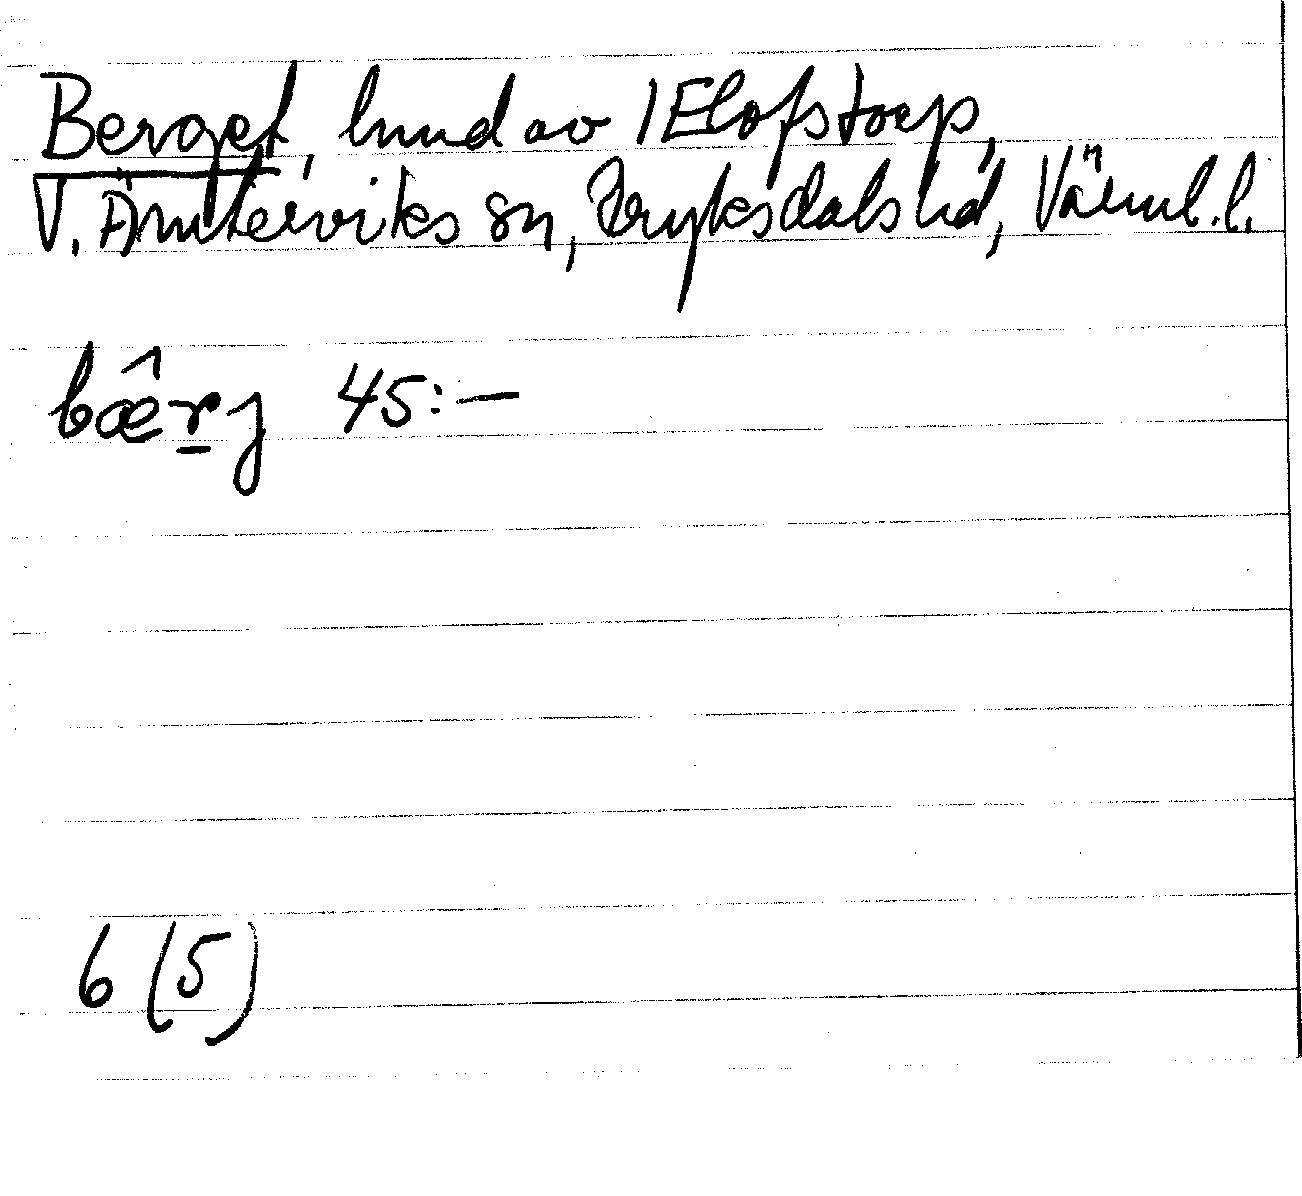 Berget, hmd av 1 Elofstorp,
V. Ämterviks sn, Fryksdals hd, Värml. l.
bæ̂r̠j 45:–
6 (5)